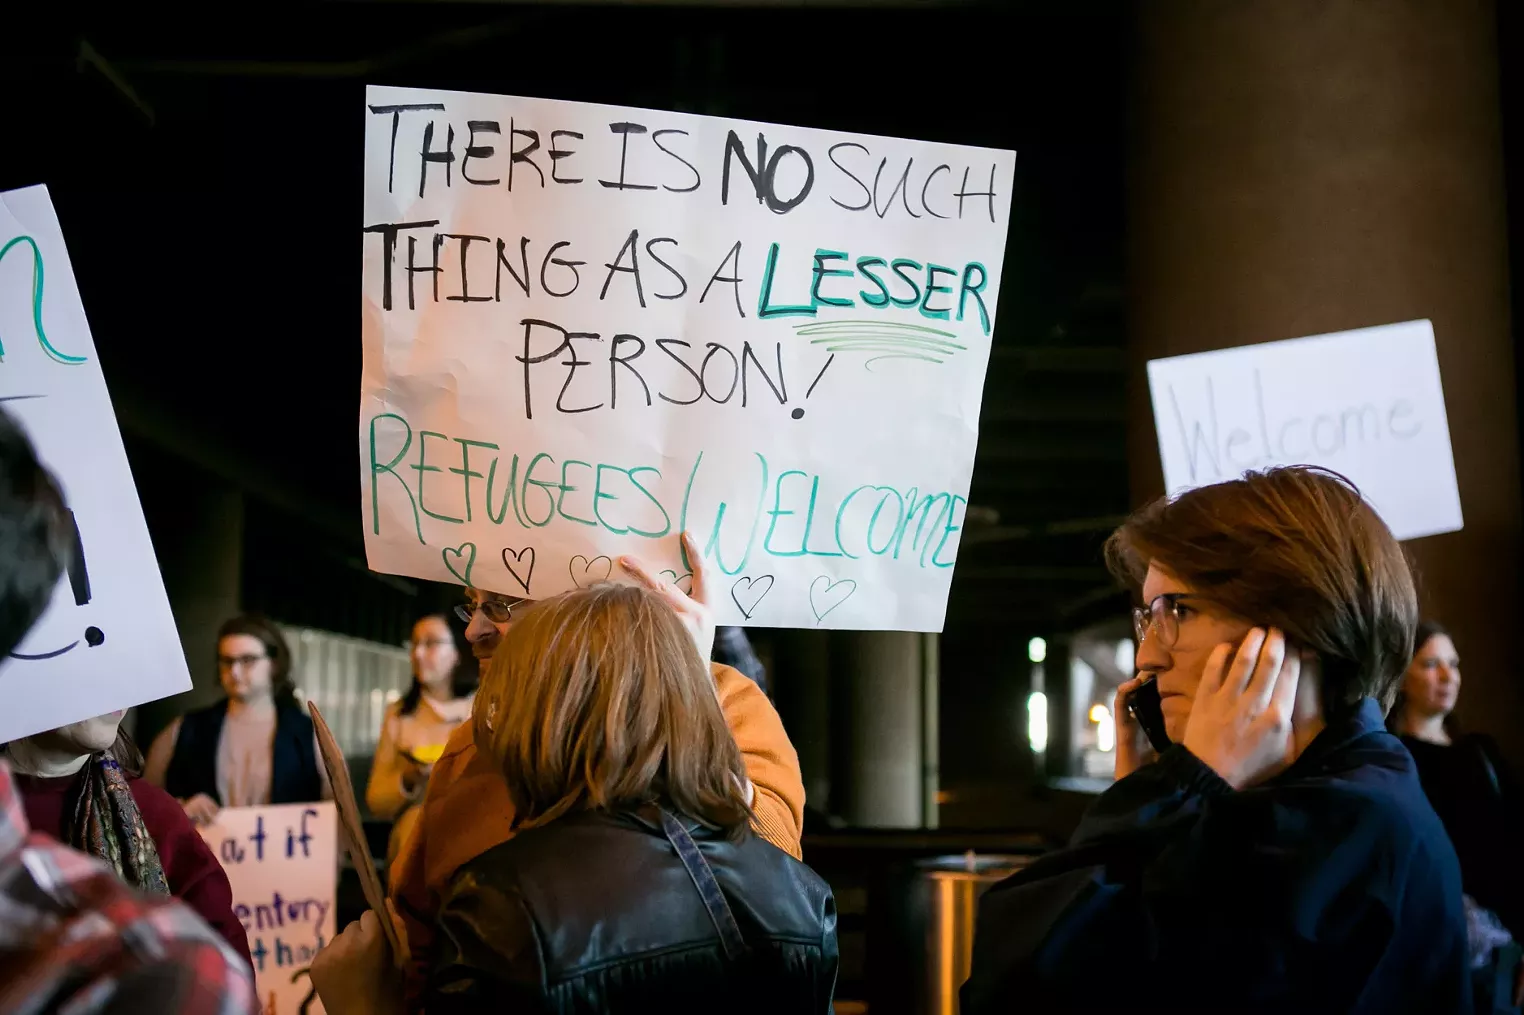 THERE IS NO SUCH
THING AS A LESSER
PERSON!
REFUGEES WELCOME
Welcome
at if
entory
tha
?
n
!